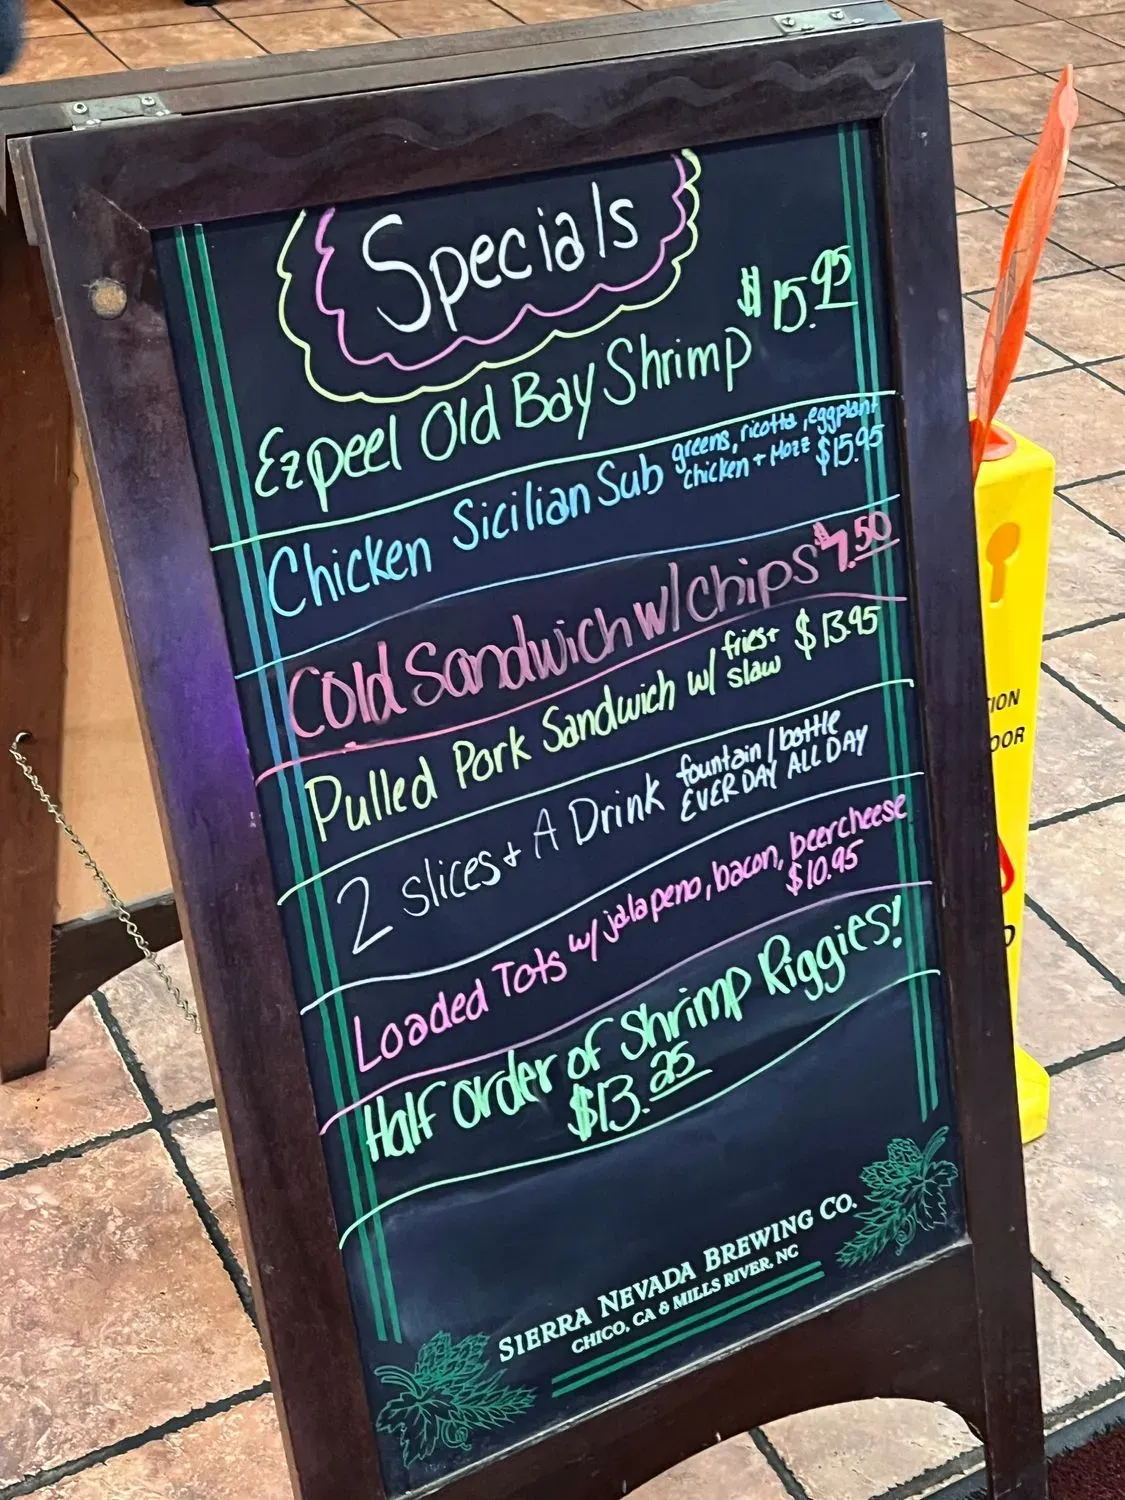 Specials
Ezpeel Old Bay Shrimp $15.95
Chicken Sicilian Sub greens, ricotta, eggplant
chicken + Mozz $15.95
Cold Sandwich w/ chips $7.50
Pulled Pork Sandwich w/ fries+
slaw $13.95
2 slices + A Drink fountain/bottle
EVERDAY ALL DAY
Loaded Tots w/ jalapeno, bacon, beercheese
$10.95
Half order of Shrimp Riggies!
$13.25
SIERRA NEVADA BREWING CO.
CHICO, CA & MILLS RIVER, NC